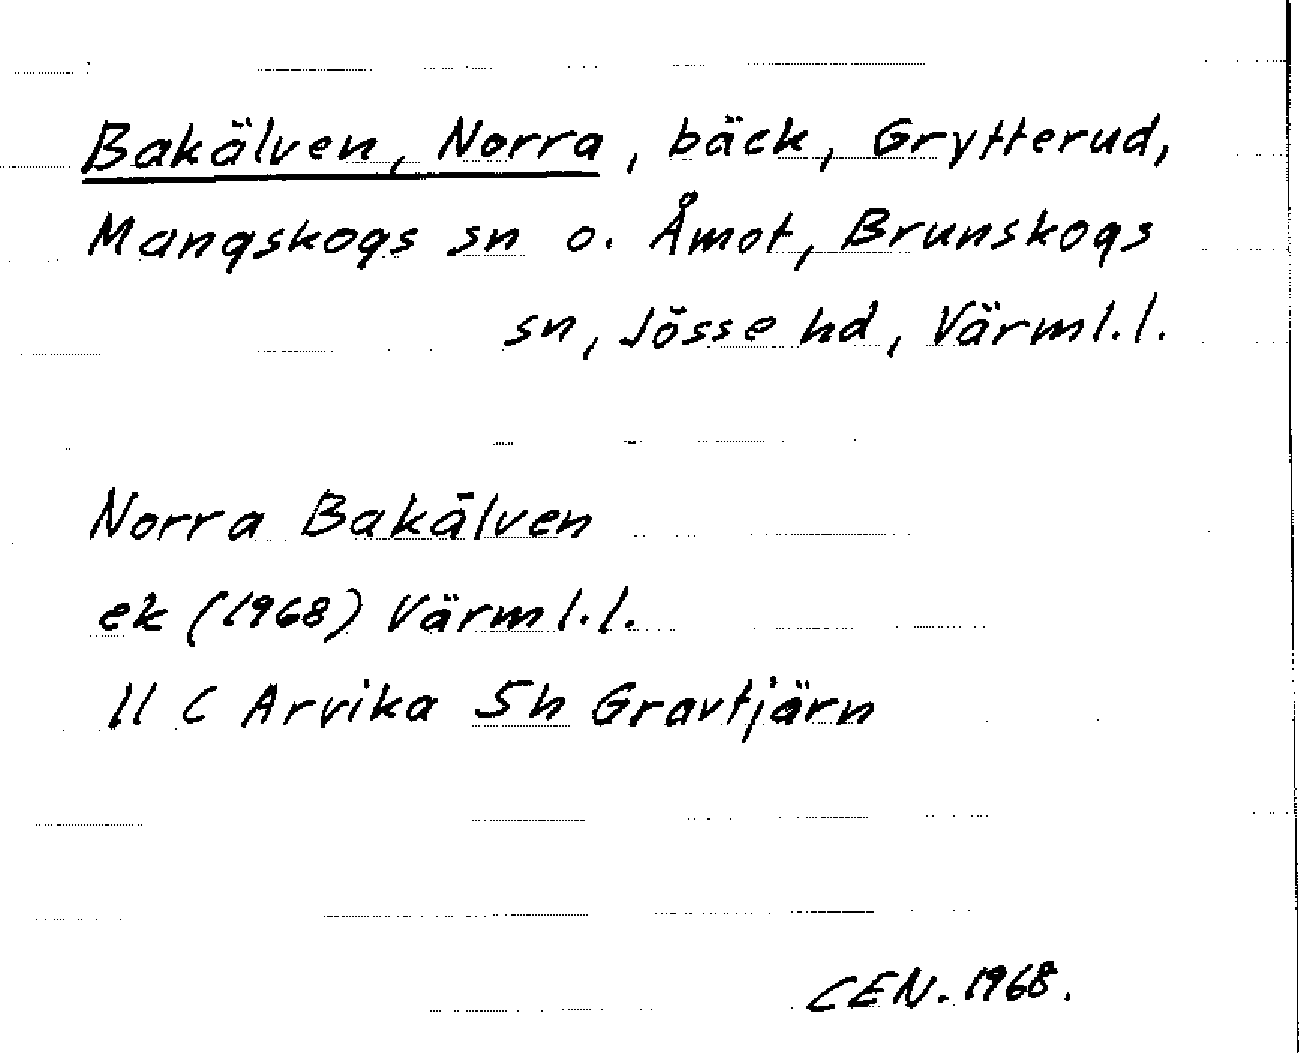 Bakälven, Norra, bäck, Grytterud,
Mangskogs sn o. Åmot, Brunskogs
sn, Jösse hd, Värml.l.
Norra Bakälven
ek (1968) Värml.l.
11 C Arvika 5h Gravtjärn
CEN. 1968.